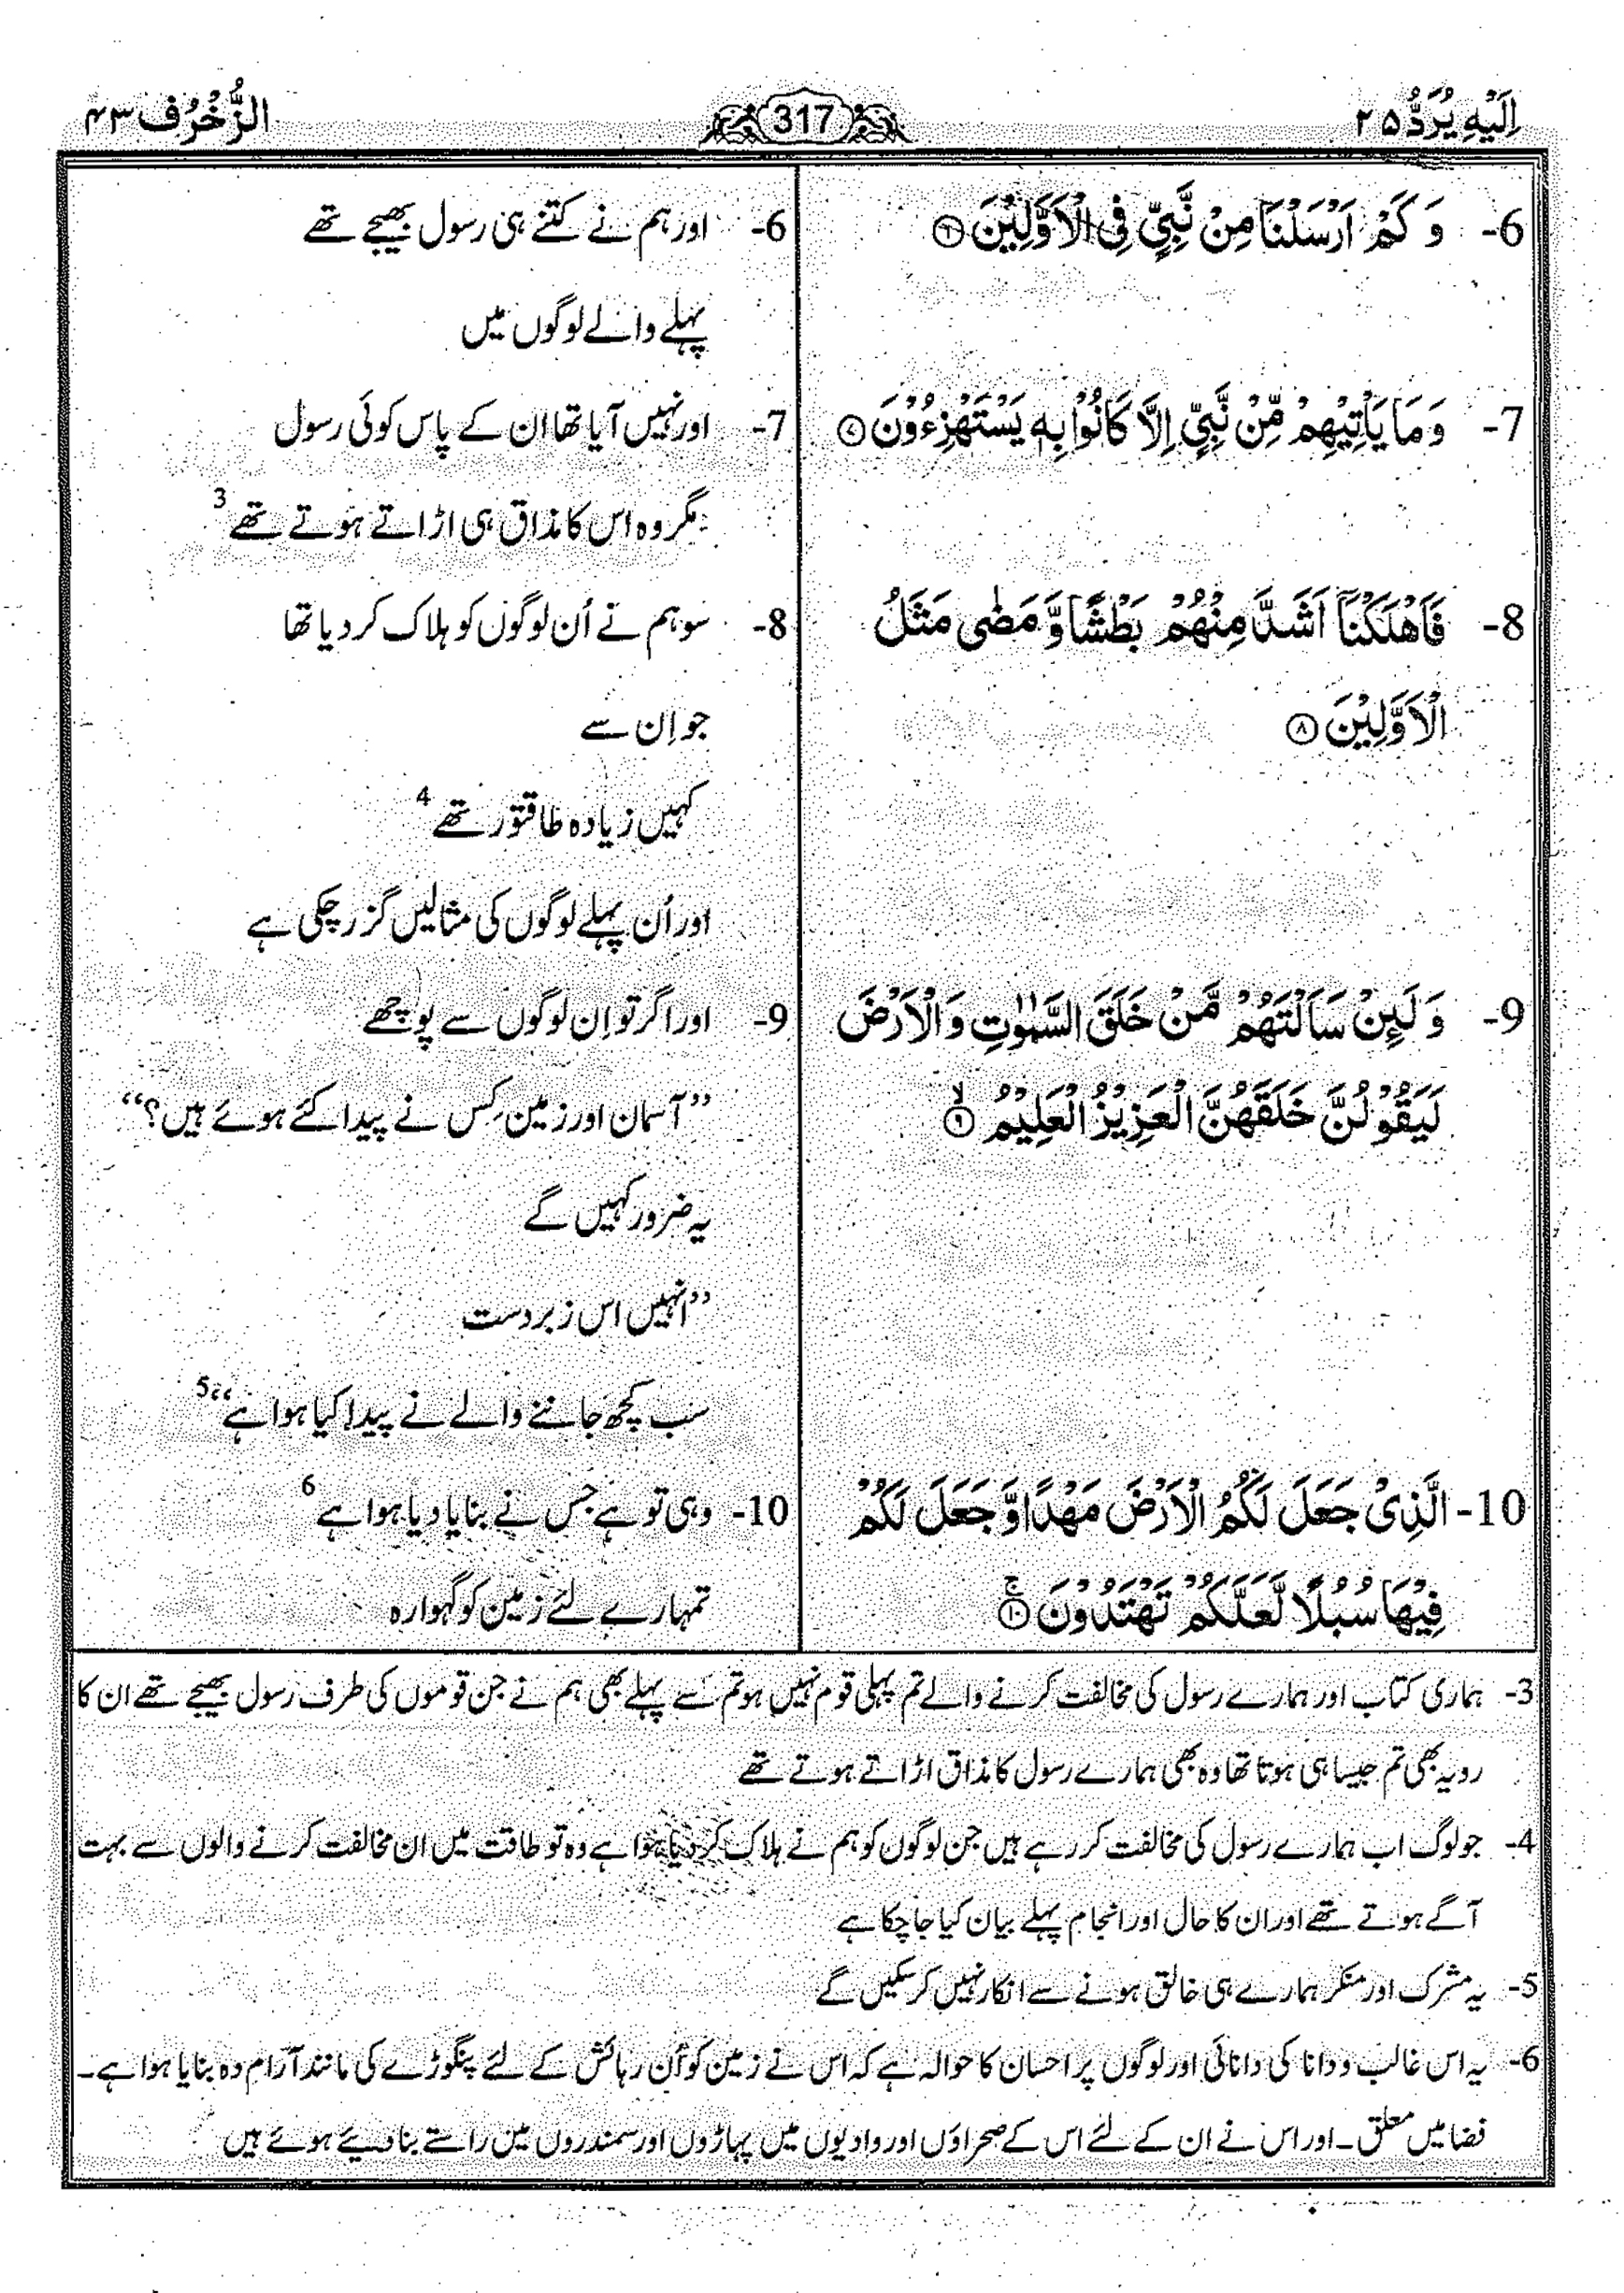 اِلَيْهِ يُرَدُّ ۲۵
317
الزُّخْرُف ۴۳
6- وَ كَمْ اَرْسَلْنَا مِنْ نَّبِيٍّ فِي الْاَوَّلِيْنَ ۝۶
7- وَ مَا يَاْتِيْهِمْ مِّنْ نَّبِيٍّ اِلَّا كَانُوْا بِهٖ يَسْتَهْزِءُوْنَ ۝۷
8- فَاَهْلَكْنَاۤ اَشَدَّ مِنْهُمْ بَطْشًا وَّ مَضٰى مَثَلُ
الْاَوَّلِيْنَ ۝۸
9- وَ لَىِٕنْ سَاَلْتَهُمْ مَّنْ خَلَقَ السَّمٰوٰتِ وَ الْاَرْضَ
لَيَقُوْلُنَّ خَلَقَهُنَّ الْعَزِيْزُ الْعَلِيْمُ ۝۹ۙ
10- الَّذِيْ جَعَلَ لَكُمُ الْاَرْضَ مَهْدًا وَّ جَعَلَ لَكُمْ
فِيْهَا سُبُلًا لَّعَلَّكُمْ تَهْتَدُوْنَ ۝۱۰ۚ
6- اور ہم نے کتنے ہی رسول بھیجے تھے
پہلے والے لوگوں میں
7- اور نہیں آیا تھا ان کے پاس کوئی رسول
مگر وہ اس کا مذاق ہی اڑاتے ہوتے تھے 3
8- سو ہم نے اُن لوگوں کو ہلاک کر دیا تھا
جو اِن سے
کہیں زیادہ طاقتور تھے 4
اور اُن پہلے لوگوں کی مثالیں گزر چکی ہے
9- اور اگر تو اِن لوگوں سے پوچھے
’’آسمان اور زمین کِس نے پیدا کئے ہوئے ہیں؟‘‘
یہ ضرور کہیں گے
’’انہیں اس زبردست
سب کچھ جاننے والے نے پیدا کیا ہوا ہے‘‘ 5
10- وہی تو ہے جس نے بنایا دیا ہوا ہے 6
تمہارے لئے زمین کو گہوارہ
3- ہماری کتاب اور ہمارے رسول کی مخالفت کرنے والے تم پہلی قوم نہیں ہو تم سے پہلے بھی ہم نے جن قوموں کی طرف رسول بھیجے تھے ان کا
رویہ بھی تم جیسا ہی ہوتا تھا وہ بھی ہمارے رسول کا مذاق اڑاتے ہوتے تھے
4- جو لوگ اب ہمارے رسول کی مخالفت کر رہے ہیں جن لوگوں کو ہم نے ہلاک کر دیا ہوا ہے وہ تو طاقت میں ان مخالفت کرنے والوں سے بہت
آگے ہوتے تھے اور ان کا حال اور انجام پہلے بیان کیا جا چکا ہے
5- یہ مشرک اور منکر ہمارے ہی خالق ہونے سے انکار نہیں کر سکیں گے
6- یہ اس غالب و دانا کی دانائی اور لوگوں پر احسان کا حوالہ ہے کہ اس نے زمین کو اُن رہائش کے لئے پنگوڑے کی مانند آرام دہ بنایا ہوا ہے۔
فضا میں معلق۔ اور اس نے ان کے لئے اس کے صحراؤں اور وادیوں میں پہاڑوں اور سمندروں میں راستے بنا دیئے ہوئے ہیں